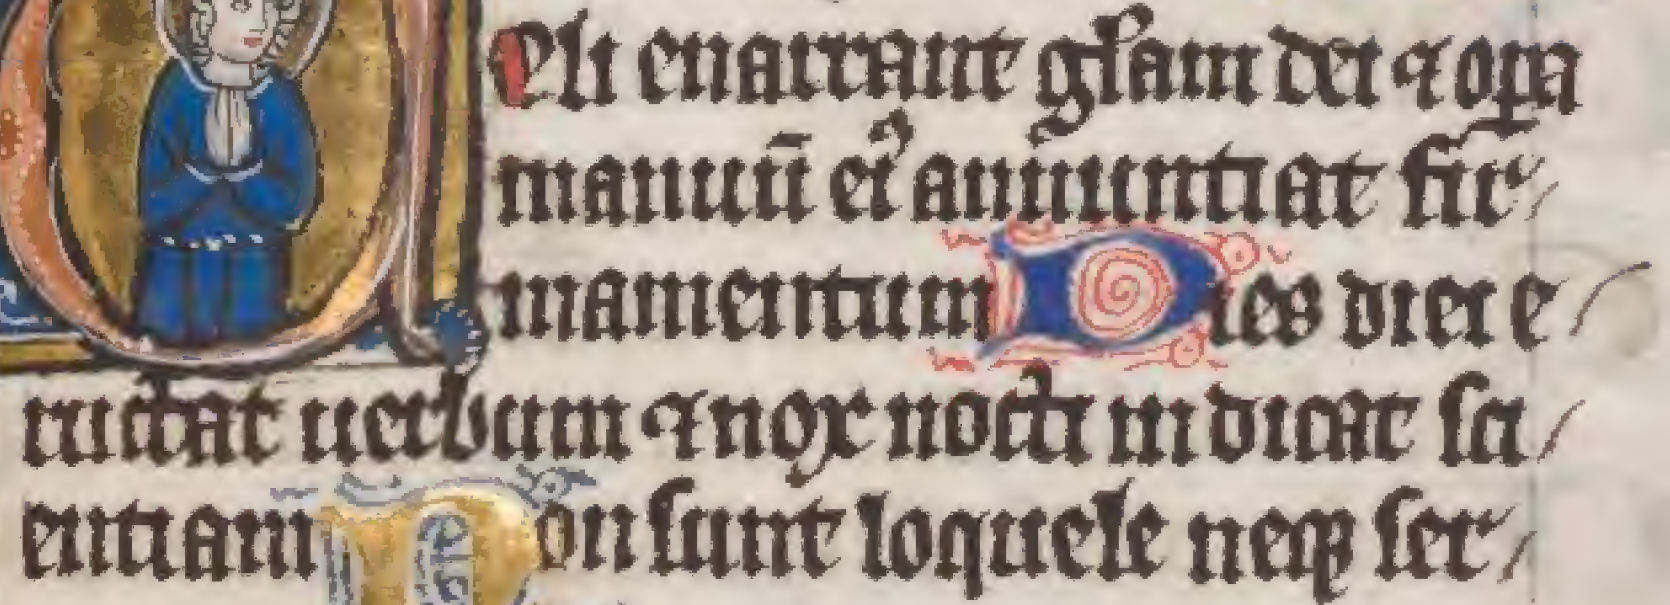 Celi enarrant gl̄am dei ⁊ oꝑa
manuū ei᷒ anūuntiat fir/
mamentum Dies diei e/
ructat uerbum ⁊ nox nocti indicat sci/
entiam Non sunt loquele neqꝫ ser/